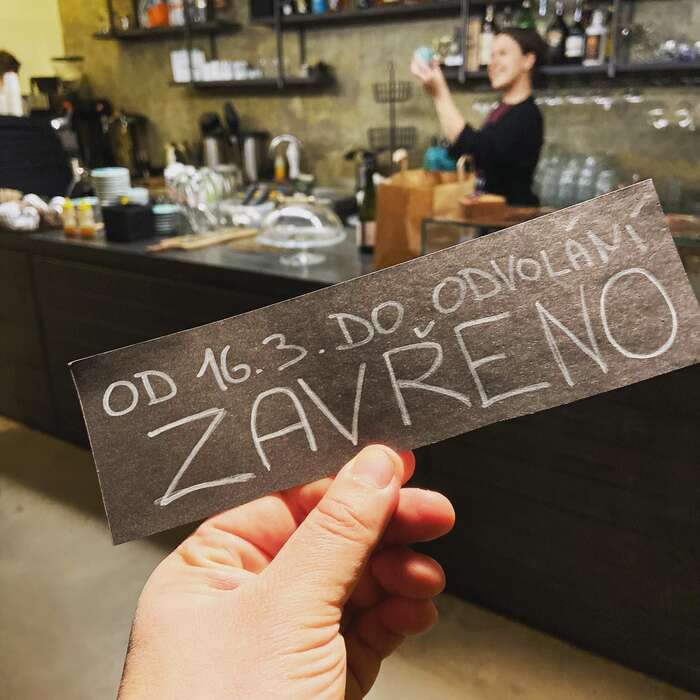 OD 16.3. DO ODVOLÁNÍ
ZAVŘENO